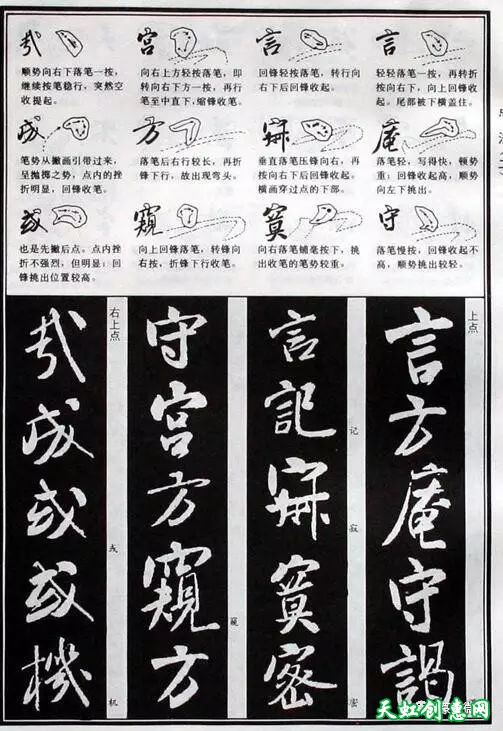 言
轻轻落笔一按，再转折
按向右下，向上回锋收
起。尾部被下横盖住。
庵
落笔轻，写得快，顿势
重；回锋收起高，顺势
向左下挑出。
守
落笔慢按，回锋收起不
高，顺势挑出较轻。
言
回锋轻按落笔，转行向
右下后回锋收起。
寂
垂直落笔压锋向右，再
按向右下后回锋收起。
横画穿过点的下部。
寞
向右落笔铺毫按下，挑
出收笔的笔势较重。
宫
向右上方轻按落笔，即
转向右下方一按，再行
笔至中直下，缩锋收笔。
方
落笔后右行较长，再折
锋下行，故出现弯头。
窥
向上回锋落笔，转锋向
右按，折锋下行收笔。
哉
顺势向右下落笔一按，
继续按笔稳行，突然空
收提起。
成
笔势从撇画引带过来，
呈抛掷之势，点内的挫
折明显，回锋收笔。
或
也是先撇后点。点内挫
折不强烈，但明显；回
锋挑出位置较高。
上点
言方庵守謁
言記寂寞密
记
寂
密
守宫方窺方
窥
右上点
哉成或或機
机
天虹创意网